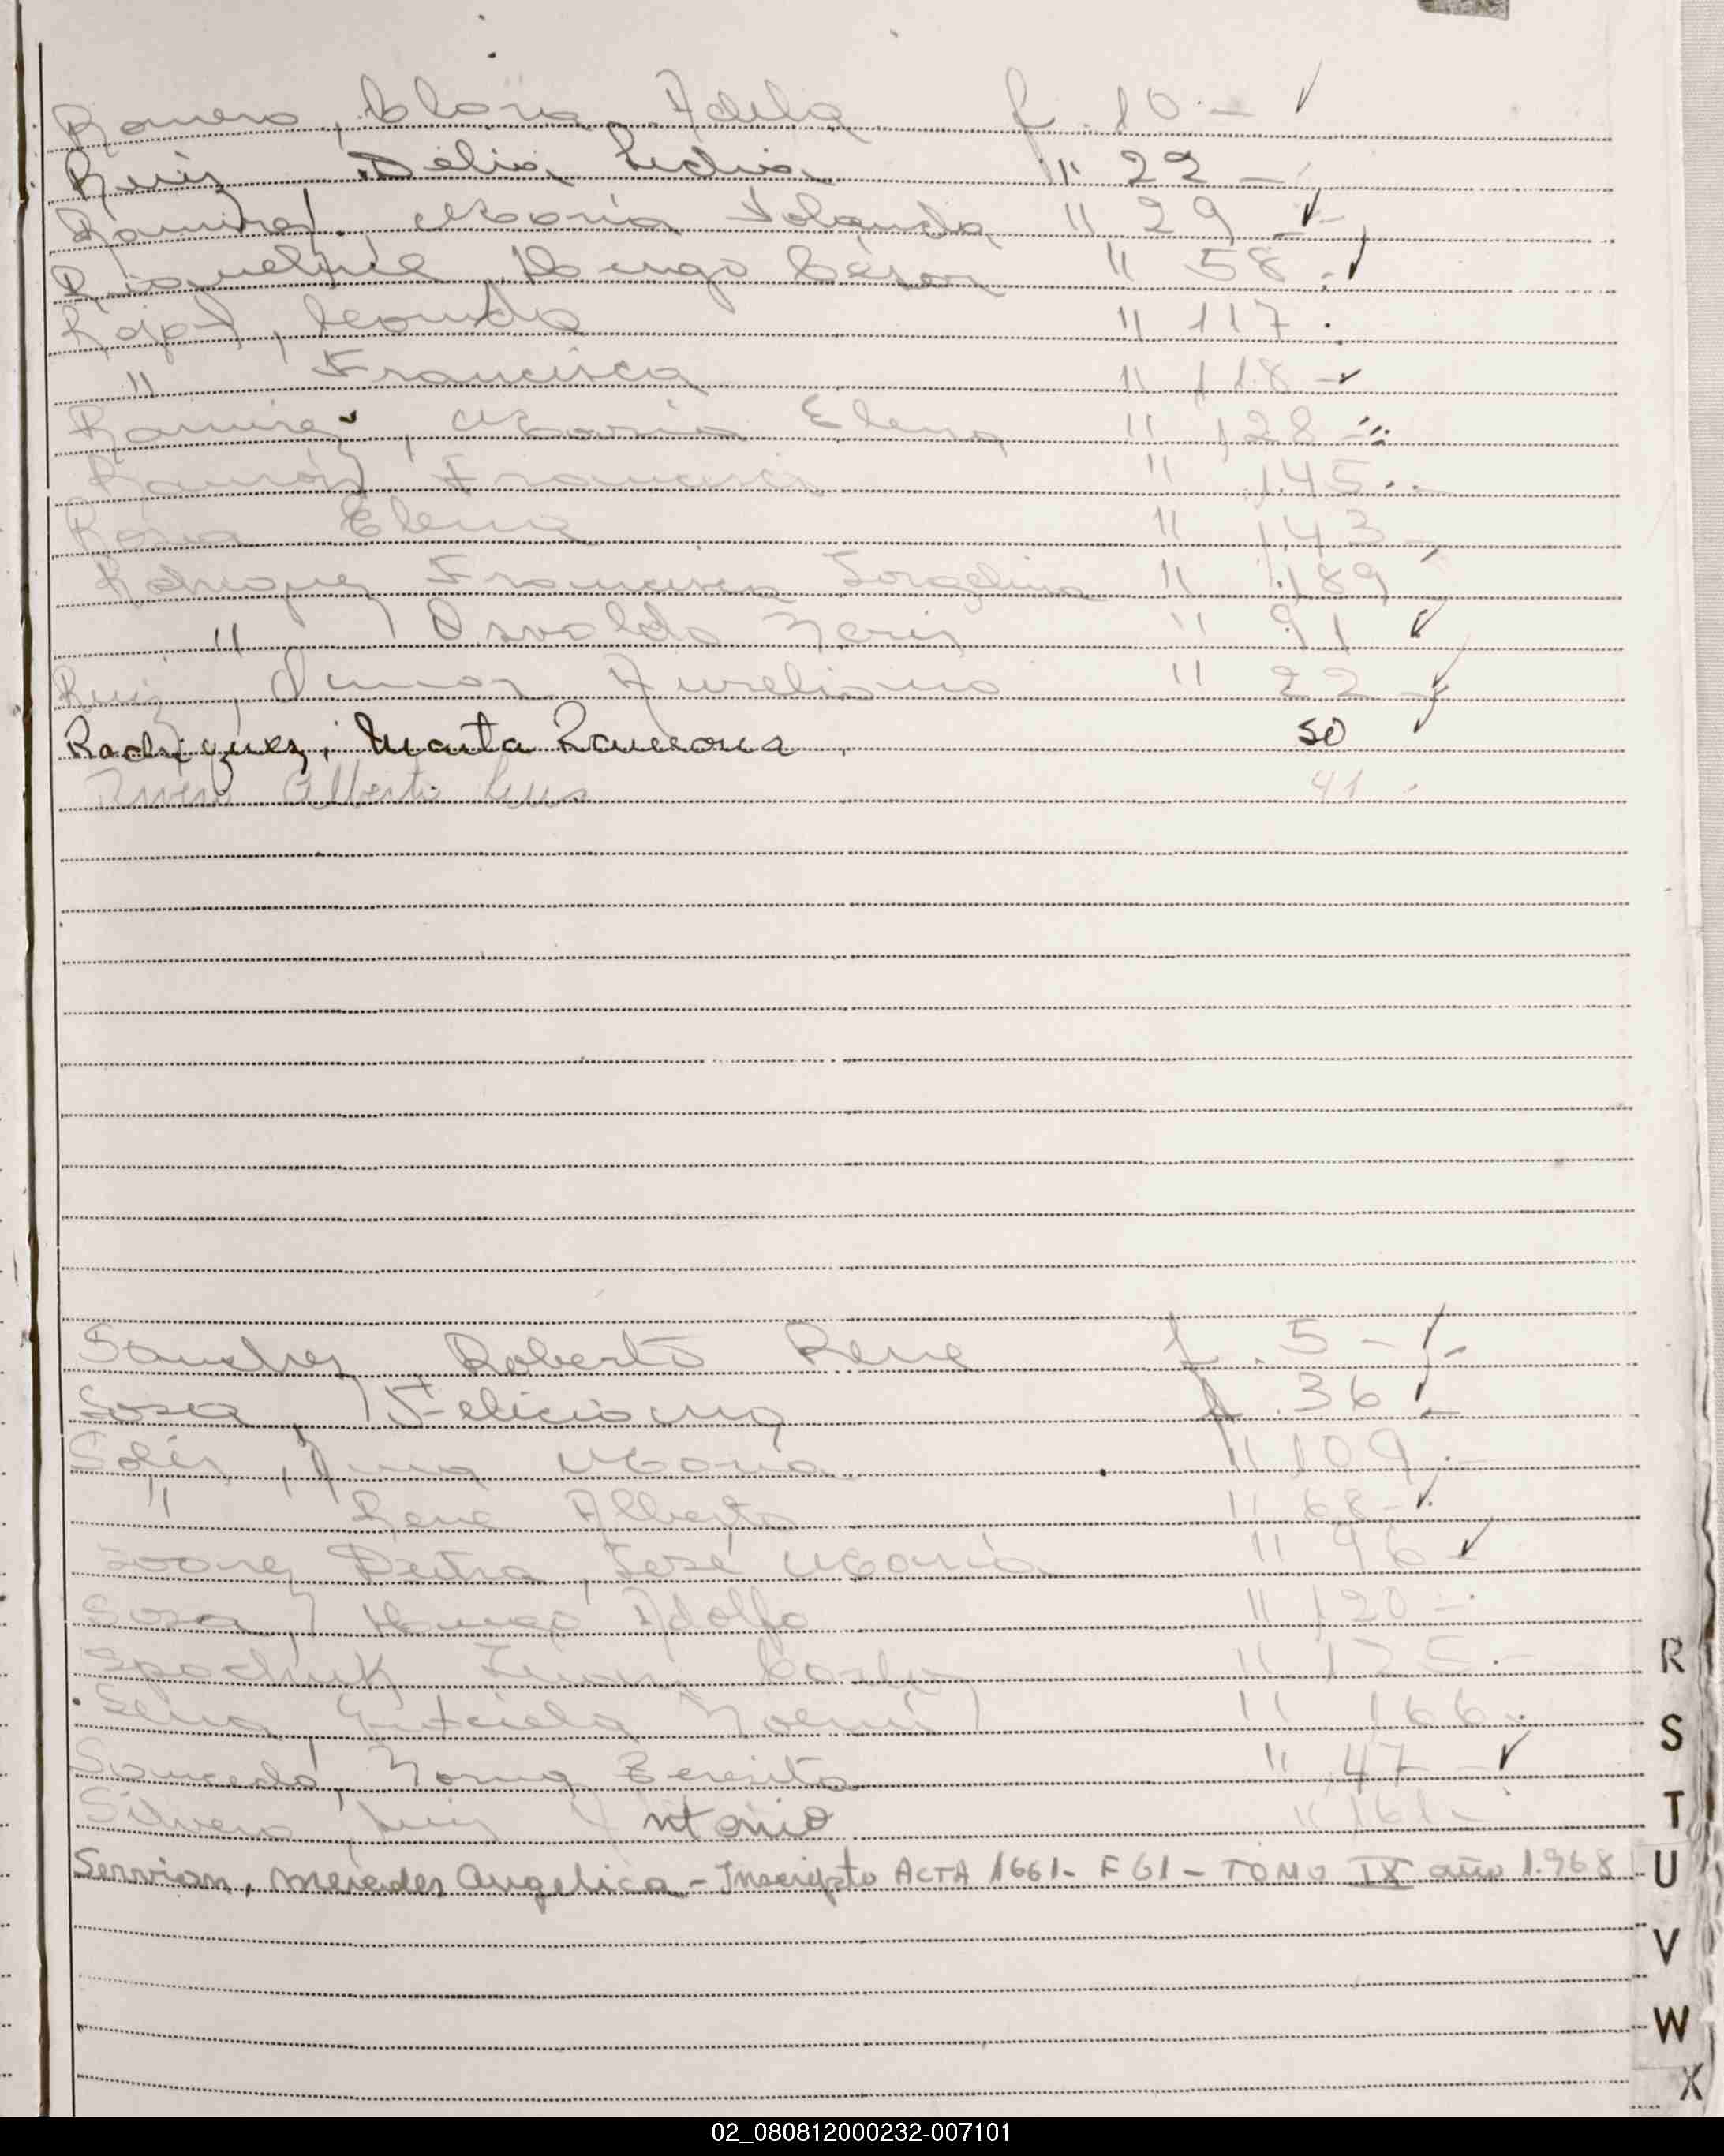 Romero, Gloria Adela f. 10.-
Ruiz Delia Lidia " 22 -
Ramirez, Maria Yolanda " 29 -
Riquelme, Hugo César " 58 .-
Leonarda " 117.
" Francisca " 118 -
Ramirez, Maria Elena " 128 -
Francisco " 145.-
Elena " 143 -
Rodriguez Francisca Jorgelina " 189
" Osvaldo " 91
Ruiz, Omar Aureliano " 22 -
Rodriguez, Marta Ramona. 50
Rivero Alberto Luis 41 -
Sanchez Roberto Rene f. 5 -
Sosa, Feliciana f. 36
Solis, Ana Maria " 109.-
" Rene Alberto " 68 -
José Maria " 96 -
Sosa, Hugo Adolfo " 120 -
Juan Carlos "
Graciela Noemí " 166.
Saucedo, Norma Teresita " 47 -
Silvero, Luis Antonio " 161 -
Servian, mercedes Angelica - Inscripto ACTA 1661- F 61 - TOMO IX año 1.968
R
S
T
U
V
W
X
02_080812000232-007101